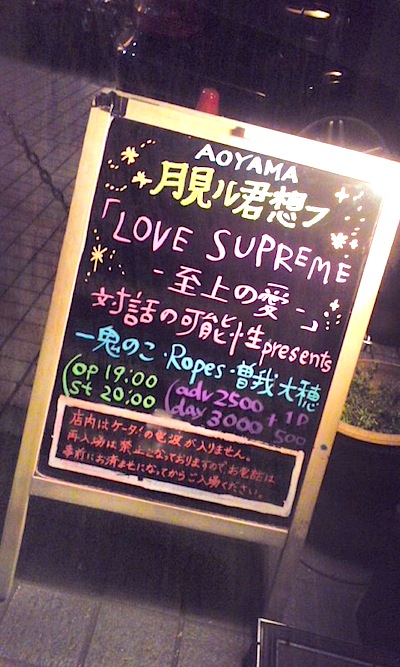 AOYAMA
月見ル君想フ
「LOVE SUPREME
-至上の愛-」
対話の可能性presents
一鬼のこ・Ropes・曽我大穂
(op 19:00 (adv 2500 + 1D
st 20:00 day 3000 500
店内はケータイの電波が入りません。
再入場は禁止となっておりますので、お電話は
事前にお済ませになってからご入場ください。